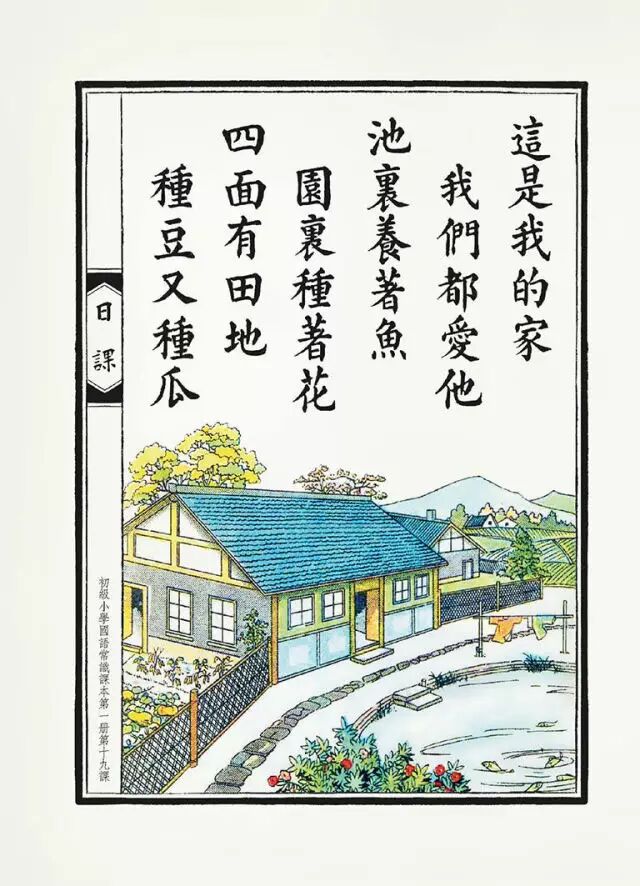 這是我的家
我們都愛他
池裏養著魚
園裏種著花
四面有田地
種豆又種瓜
日課
初級小學國語常識課本第一册第十九課